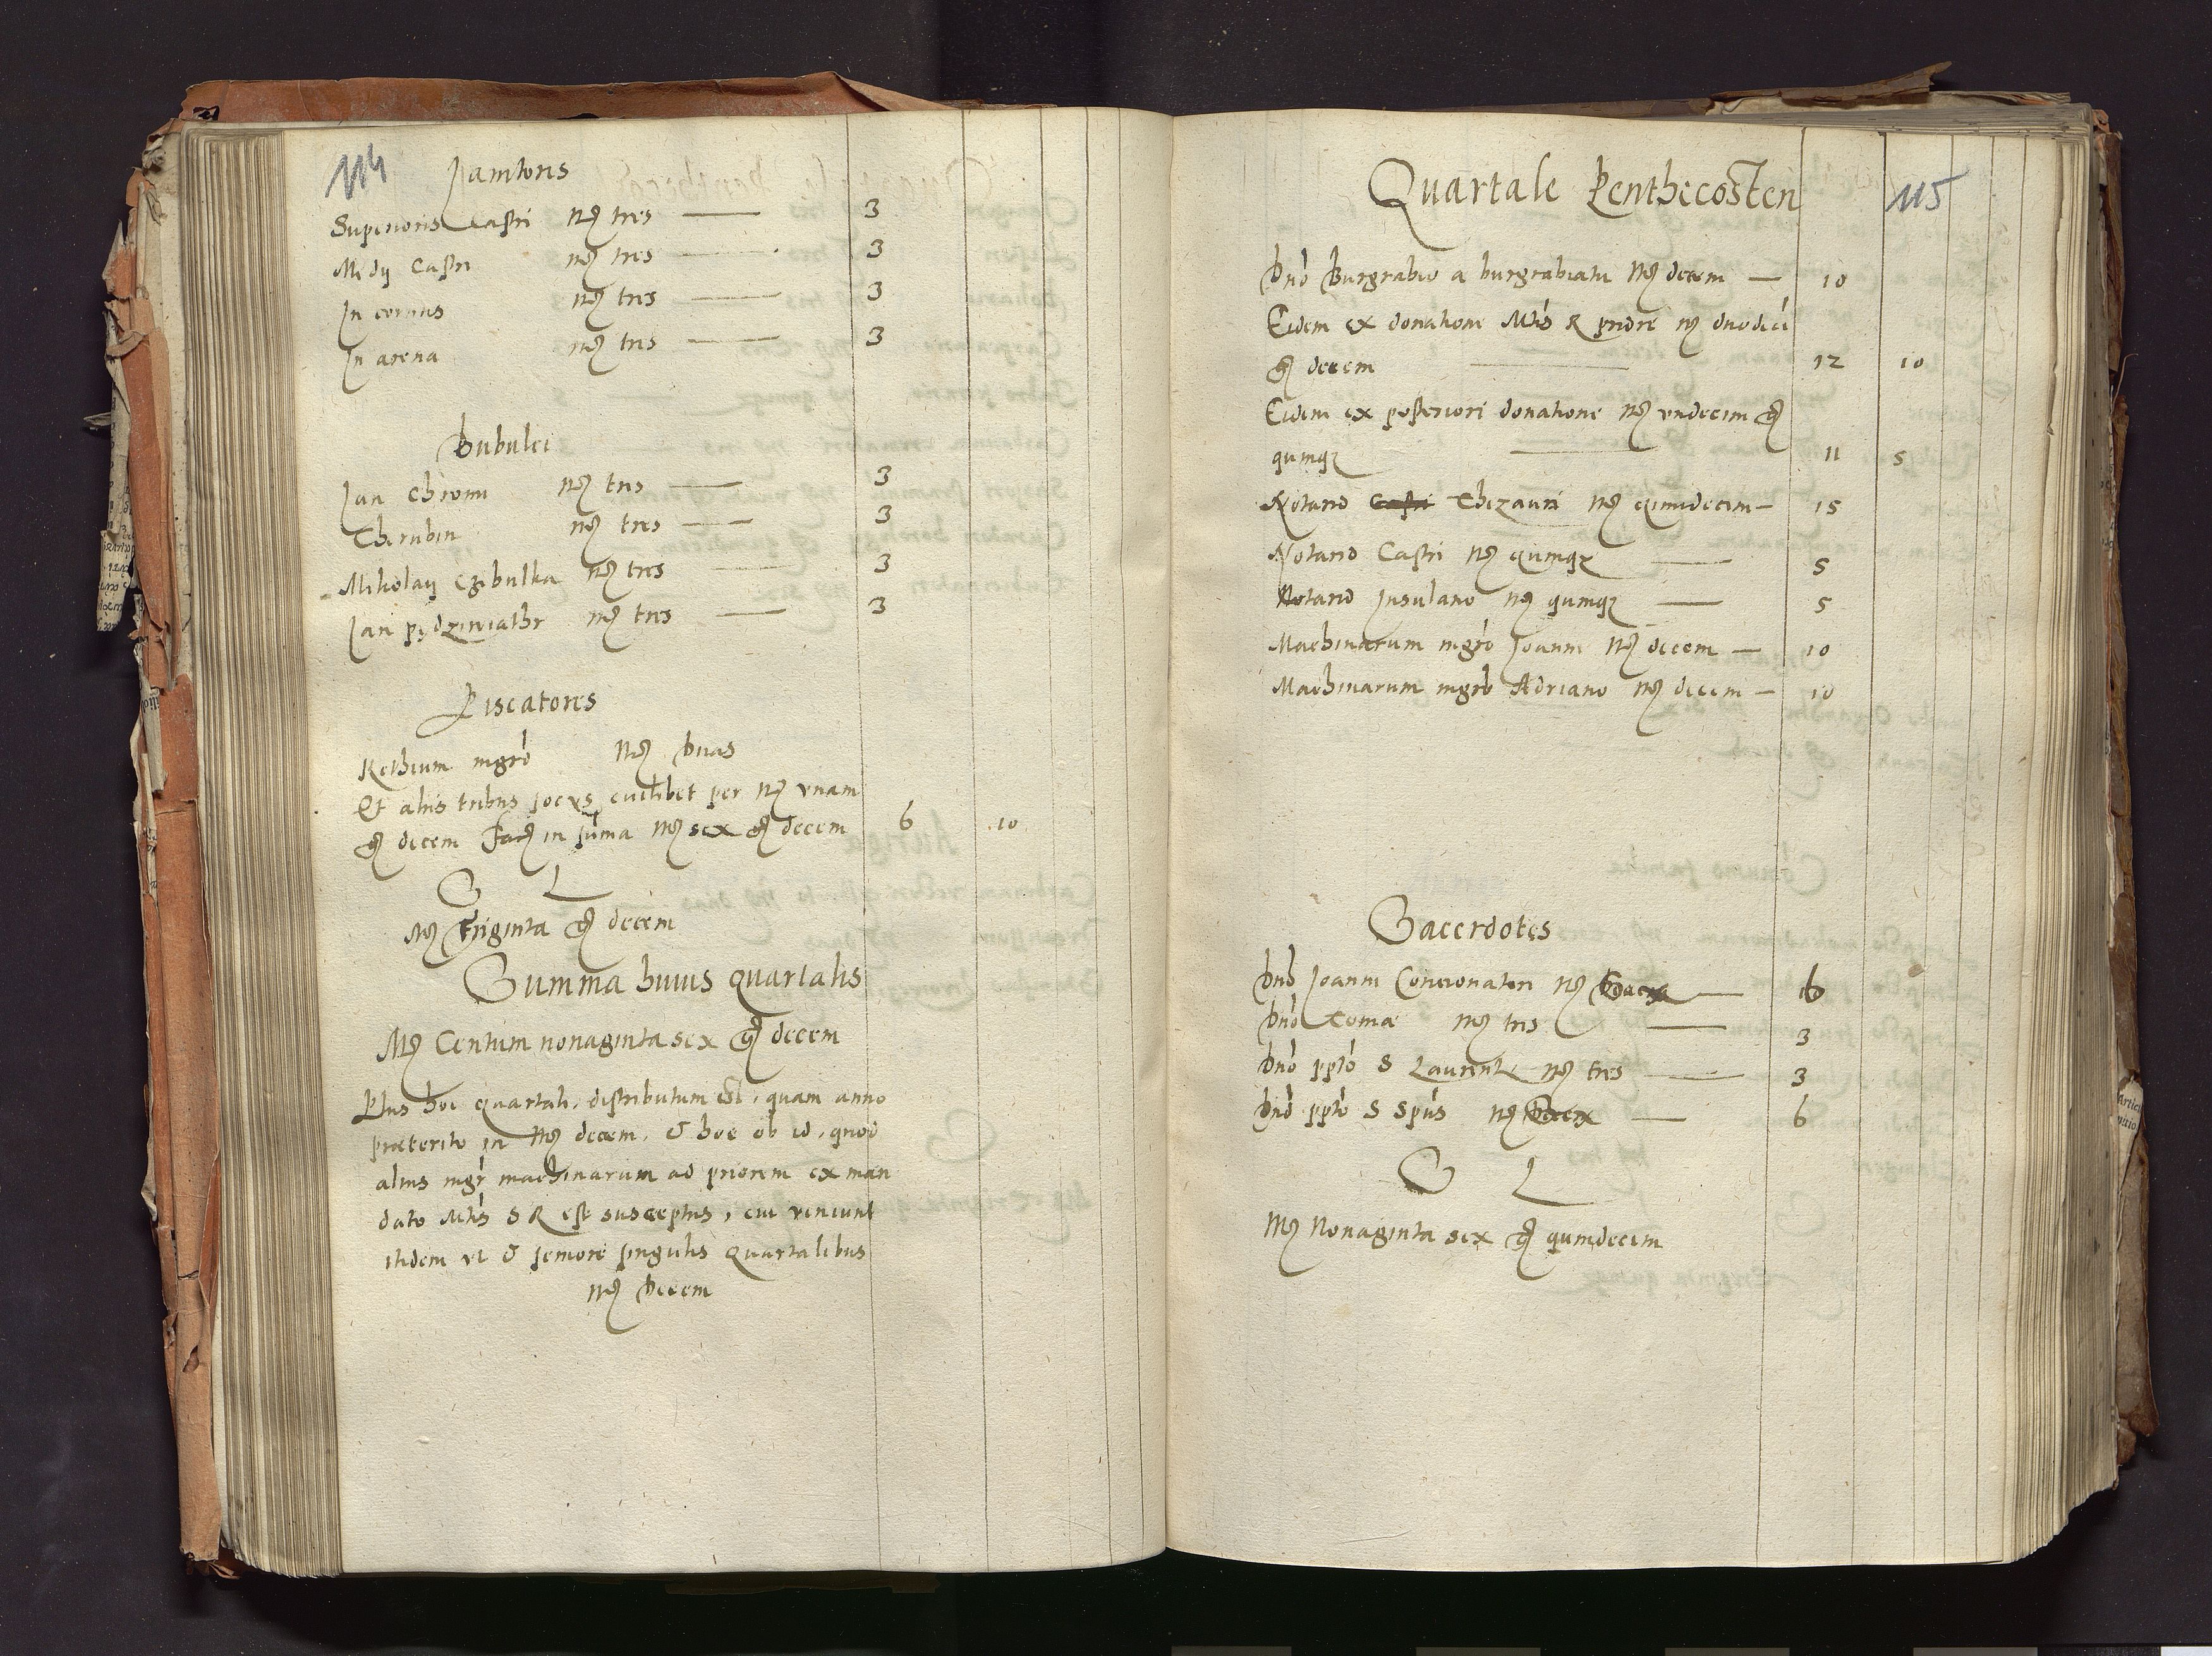 114
Janitores
Superioris Castri mg tres — 3
Medij Castri mg tres — 3
In cornus mg tres — 3
In arena mg tres — 3
Bubulci
Jan Chromi mg tres — 3
Cherubin mg tres — 3
Mikolaij Czibulka mg tres — 3
Jan mg tres — 3
Piscatores
Rethium mgro mg duas
Et aliis tribus socys cuilibet per mg unam
g decem fac in suma mg sex g decem 6 10
S L
Mg Triginta g decem
Summa huius quartalis
Mg Centum nonaginta sex g decem
Plus hoc quartali, distributum est, quam anno
præterito in mg decem, & hoc ob id, quod
alius mgr machinarum ad priorem ex man
dato Mtis S R est susceptus, cui veniunt
itidem ut & seniore singulis quartalibus
mg Decem
115
Quartale Penthecosten
Dno Burgrabio a burgrabiatu mg decem — 10
Eidem ex donatione Mtis R priore mg duodeci
g decem — 12 10
Eidem ex posteriori donatione mg undecim g
quinqz — 11 5
Notario Castri Thezauri mg quindecim — 15
Notario Castri mg quinqz — 5
Notario Insulano mg quinqz — 5
Machinarum mgro Joanni mg decem — 10
Machinarum mgro Adriano mg decem — 10
Sacerdotes
Dno Joanni Concionatori mg —
Dno Tomæ mg tres — 3
Dno ppto S Laurenti mg tres — 3
Dno ppto S Spus mg — 6
S L
Mg Nonaginta sex g quindecim